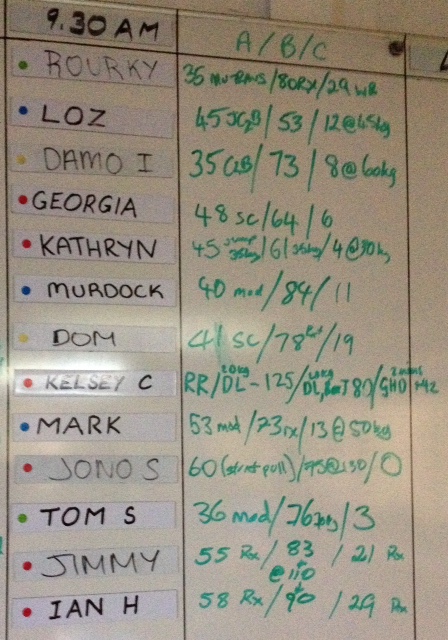 9.30 AM A/B/C
ROURKY 35 /80RX/29 WR
LOZ 45 /53/12@45kg
DAMO I 35 /73/8@60kg
GEORGIA 48 SC/64/6
KATHRYN 45 /61 35kg/4@30kg
MURDOCK 40 mod/84/11
DOM 41 SC/78 /19
KELSEY C RR/DL 20kg-125/ /GHD
MARK 53 mod/73rx/13@50kg
JONO S 60 (strict pull)/75@130/0
TOM S 36 mod/76 /3
JIMMY 55 Rx/83 @110/21 Rx
IAN H 58 Rx/90/29 Rx